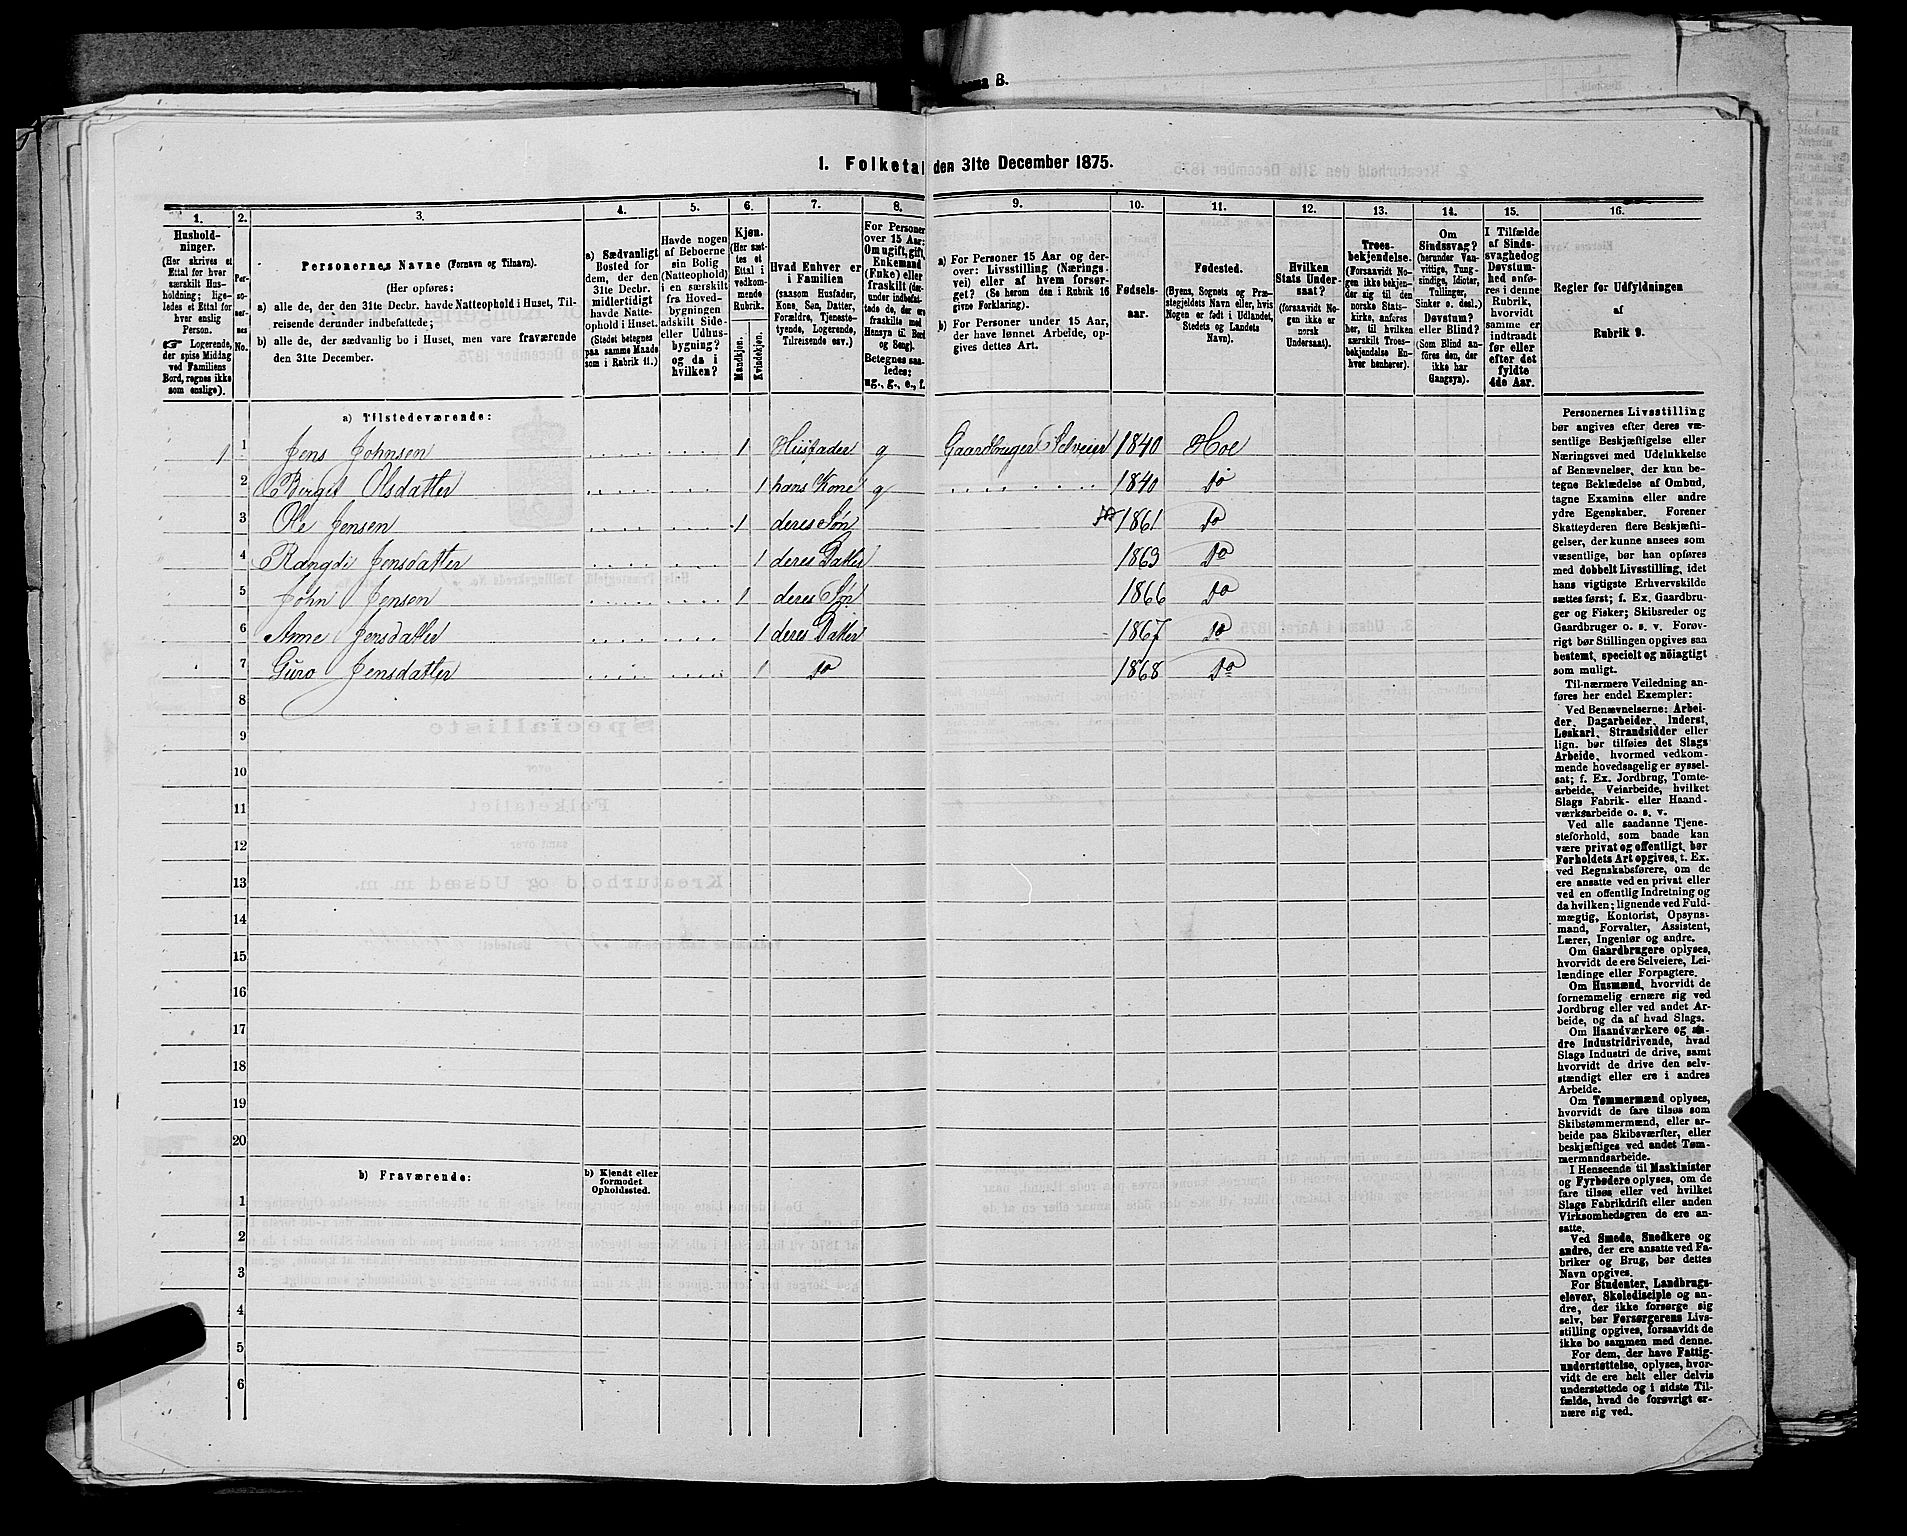 B.
1. Folketal den 31te December 1875.
1. 2. 3. 4. 5. 6. 7. 8. 9. 10. 11. 12. 13. 14. 15. 16.
Hushold-
ninger.
(Her skrives et
Ettal for hver
særskilt Hus-
holdning; lige-
ledes et Ettal for
hver enslig
Person.
☛ Logerende,
der spise Middag
ved Familiens
Bord, regnes ikke
som enslige).
Per-
so-
ner-
nes
No.
Personernes Navne (Fornavn og Tilnavn).
(Her opføres:
a) alle de, der den 31te Decbr. havde Natteophold i Huset, Til-
reisende derunder indbefattede;
b) alle de, der sædvanlig bo i Huset, men vare fraværende
den 31te December.
a) Sædvanligt
Bosted for
dem, der den
31te Decbr.
midlertidigt
havde Natte-
ophold i Huset.
(Stedet betegnes
paa samme Maade
som i Rubrik 11.)
Havde nogen
af Beboerne
sin Bolig
(Natteophold)
i en særskilt
fra Hoved-
bygningen
adskilt Side-
eller Udhus-
bygning?
og da i
hvilken?
Kjøn.
(Her sæt-
tes et
Ettal i
vedkom-
mende
Rubrik.
Mandkjøn.
Kvindekjøn.
Hvad Enhver er
i Familien
(saasom Husfader,
Kone, Søn, Datter,
Forældre, Tjeneste-
tyende, Logerende,
Tilreisende osv.)
For Personer
over 15 Aar:
Om ugift, gift,
Enkemand
(Enke) eller
fraskilt (der-
under indbefat-
tede de, der ere
fraskilte med
Hensyn til Bord
og Seng).
Betegnes saa-
ledes:
ug., g., e., f.
a) For Personer 15 Aar og der-
over: Livsstilling (Nærings-
vei) eller af hvem forsør-
get? (Se herom den i Rubrik 16
givne Forklaring).
b) For Personer under 15 Aar,
der have lønnet Arbeide, op-
gives dettes Art.
Fødsels-
aar.
Fødested.
(Byens, Sognets og Præ-
stegjeldets Navn eller, hvis
Nogen er født i Udlandet,
Stedets og Landets
Navn).
Hvilken
Stats Under-
saat?
(forsaavidt No-
gen ikke er
norsk
Undersaat).
Troes-
bekjendelse.
(Forsaavidt No-
gen ikke bekjen-
der sig til den
norske Stats-
kirke, anføres
her, til hvilken
særskilt Troes-
bekjendelse En-
hver henhører).
Om
Sindssvag?
(herunder Van-
vittige, Tung-
sindige, Idioter,
Tullinger,
Sinker o. desl.)
Døvstum?
eller Blind?
(Som Blind an-
føres den, der
ikke har
Gangsyn).
I Tilfælde
af Sinds-
svaghed og
Døvstum-
hed anfø-
res i denne
Rubrik,
hvorvidt
samme er
indtraadt
før eller
efter det
fyldte
4de Aar.
Regler for Udfyldningen
af
Rubrik 9.
a) Tilstedeværende:
1 1 Jens Johnsen 1 Husfader g Gaardbruger Selveier 1840 Hoe
2 Berget Olsdatter 1 hans Kone g 1840 do
3 Ole Jensen 1 deres Søn 1861 do
4 Rangdi Jensdatter 1 deres Datter 1863 do
5 John Jensen 1 deres Søn 1866 do
6 Ane Jensdatter 1 deres Datter 1867 do
7 Guro Jensdatter 1 do 1868 do
8
9
10
11
12
13
14
15
16
17
18
19
20
b) Fraværende:
b) Kjendt eller
formodet
Opholdssted.
1
2
3
4
5
6
Personernes Livsstilling
bør angives efter deres væ-
sentlige Beskjæftigelse eller
Næringsvei med Udelukkelse
af Benævnelser, der kun be-
tegne Beklædelse af Ombud,
tagne Examina eller andre
ydre Egenskaber. Forener
Skatteyderen flere Beskjæfti-
gelser, der kunne ansees som
væsentlige, bør han opføres
med dobbelt Livsstilling, idet
hans vigtigste Erhvervskilde
sættes først; f. Ex. Gaardbru-
ger og Fisker; Skibsreder og
Gaardbruger o. s. v. Forøv-
rigt bør Stillingen opgives saa
bestemt, specielt og nöiagtigt
som muligt.
Til nærmere Veiledning an-
føres her endel Exempler:
Ved Benævnelserne: Arbei-
der, Dagarbeider, Inderst,
Løskarl, Strandsidder eller
lign. bør tilføies det Slags
Arbeide, hvormed vedkom-
mende hovedsagelig er syssel-
sat; f. Ex. Jordbrug, Tomte-
arbeide, Veiarbeide, hvilket
Slags Fabrik- eller Haand-
værksarbeide o. s. v.
Ved alle saadanne Tjene-
steforhold, som baade kan
være privat og offentligt, bør
Forholdets Art opgives, t. Ex.
ved Regnskabsførere, om de
ere ansatte ved en privat eller
ved en offentlig Indretning og
da hvilken; lignende ved Fuld-
mægtig, Kontorist, Opsyns-
mand, Forvalter, Assistent,
Lærer, Ingeniør og andre.
Om Gaardbrugere oplyses,
hvorvidt de ere Selveiere, Lei-
lændinge eller Forpagtere.
Om Husmænd, hvorvidt de
fornemmelig ernære sig ved
Jordbrug eller ved andet Ar-
beide, og da af hvad Slags.
Om Haandværkere og an-
dre Industridrivende, hvad
Slags Industri de drive, samt
hvorvidt de drive den selv-
stændigt eller ere i andres
Arbeide.
Om Tømmermænd oplyses,
hvorvidt de fare tilsøs som
Skibstømmermænd, eller ar-
beide paa Skibsværfter, eller
beskjæftiges ved andet Tøm-
mermandsarbeide.
I Henseende til Maskinister
og Fyrbødere oplyses, om de
fare tilsøs eller ved hvilket
Slags Fabrikdrift eller anden
Virksomhedsgren de ere an-
satte.
Ved Smede, Snedkere og
andre, der ere ansatte ved Fa-
briker og Brug, bør dettes
Navn opgives.
For Studenter, Landbrugs-
elever, Skoledisciple og an-
dre, der ikke forsørge sig
selv, bør Forsørgerens Livs-
stilling opgives, forsaavidt de
ikke bo sammen med denne.
For dem, der have Fattig-
understøttelse, oplyses, hvor-
vidt de ere helt eller delvis
understøttede og i sidste Til-
fælde, hvad de forøvrigt er-
nære sig ved.